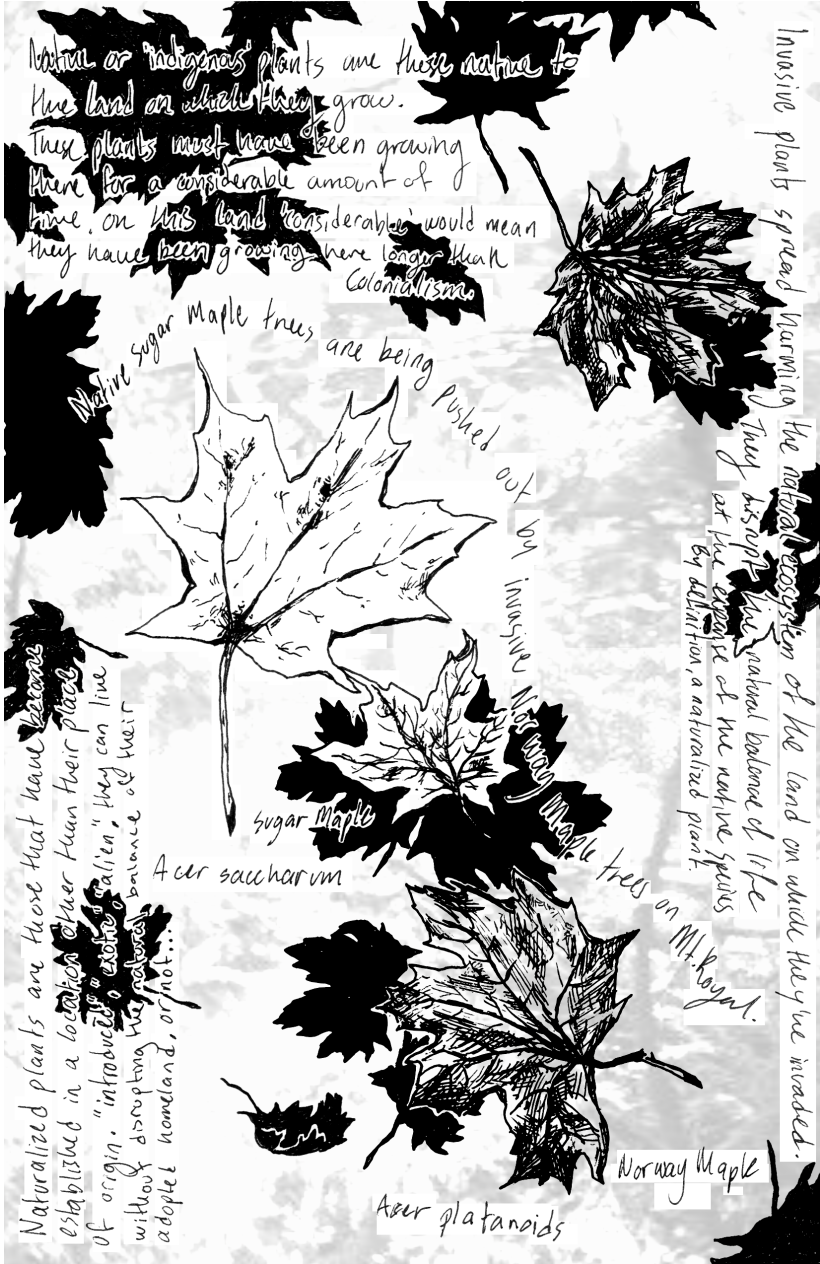 Native or 'indigenous' plants are those native to
the land on which they grow.
These plants must have been growing
there for a considerable amount of
time, on this land 'considerable' would mean
they have been growing here longer than
Colonialism.
Native sugar maple trees are being pushed out by invasive Norway Maple trees on Mt. Royal.
Invasive plants spread harming the natural ecosystem of the land on which they've invaded.
They disrupt the natural balance of life
at the expense of the native species
By definition, a naturalized plant.
Sugar Maple
Acer saccharum
Naturalized plants are those that have become
established in a location other than their place
of origin. "introduced" "exotic" "alien," they can live
without disrupting the natural balance of their
adopted homeland, or not...
Norway Maple
Acer platanoids